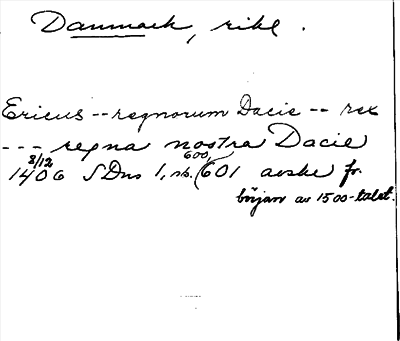 Danmark, rike.
Ericus -- regnorum Dacie -- rex
--- regna nostra Dacie
8/12 600,
1406 SDns 1, nr. (601 avskr fr.
början av 1500-talet.